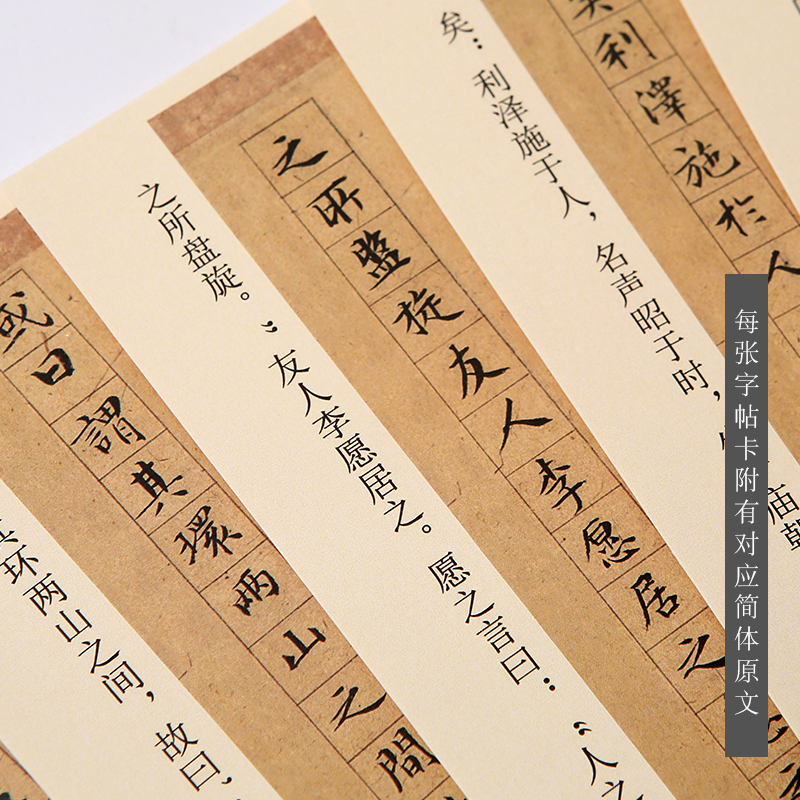 每张字帖卡附有对应简体原文
利澤施於人
矣：利泽施于人，名声昭于时，
庙朝
之所盤旋友人李愿居之
之所盘旋。”友人李愿居之。愿之言曰：“人之
或曰謂其環兩山之間
其环两山之间，故曰，